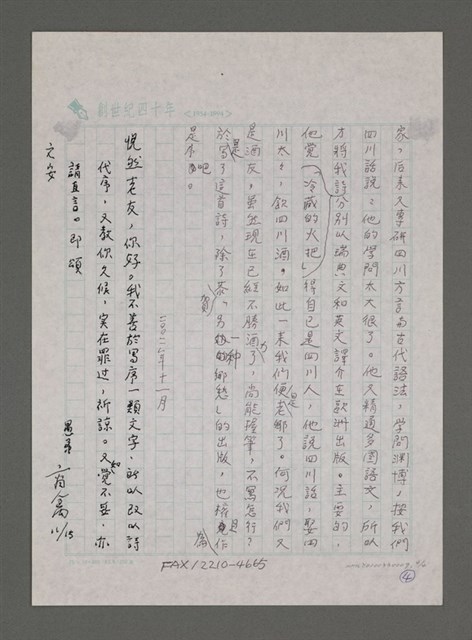 創世紀四十年
<1954-1994>
家。后来又專研四川方言与古代語法，学問渊博，按我們
四川話説：他的学問太大很了。他又精通多國語文，所以
才將我詩（冷藏的火把）分别以瑞典文和英文譯介在歐洲出版。主要的，
他覺得自己是四川人，他説四川話，娶四
川太太，飲四川酒。如此一来我們便是老鄉了。何况我們又
是酒友，虽然现在已經不勝酒力了，尚能握筆，不寫怎行？
於是寫了這首詩，除了恭賀「另一種鄉愁」的出版，也權作
是序吧。
二〇〇二年十一月
恍然老友，你好。我不善於寫序一類文字，所以改以詩
代序，又教你久候，实在罪过，祈諒。又知覺不妥，亦
請直言。即頌
文安
愚弟 商禽
11/15
FAX/2210-4665
④